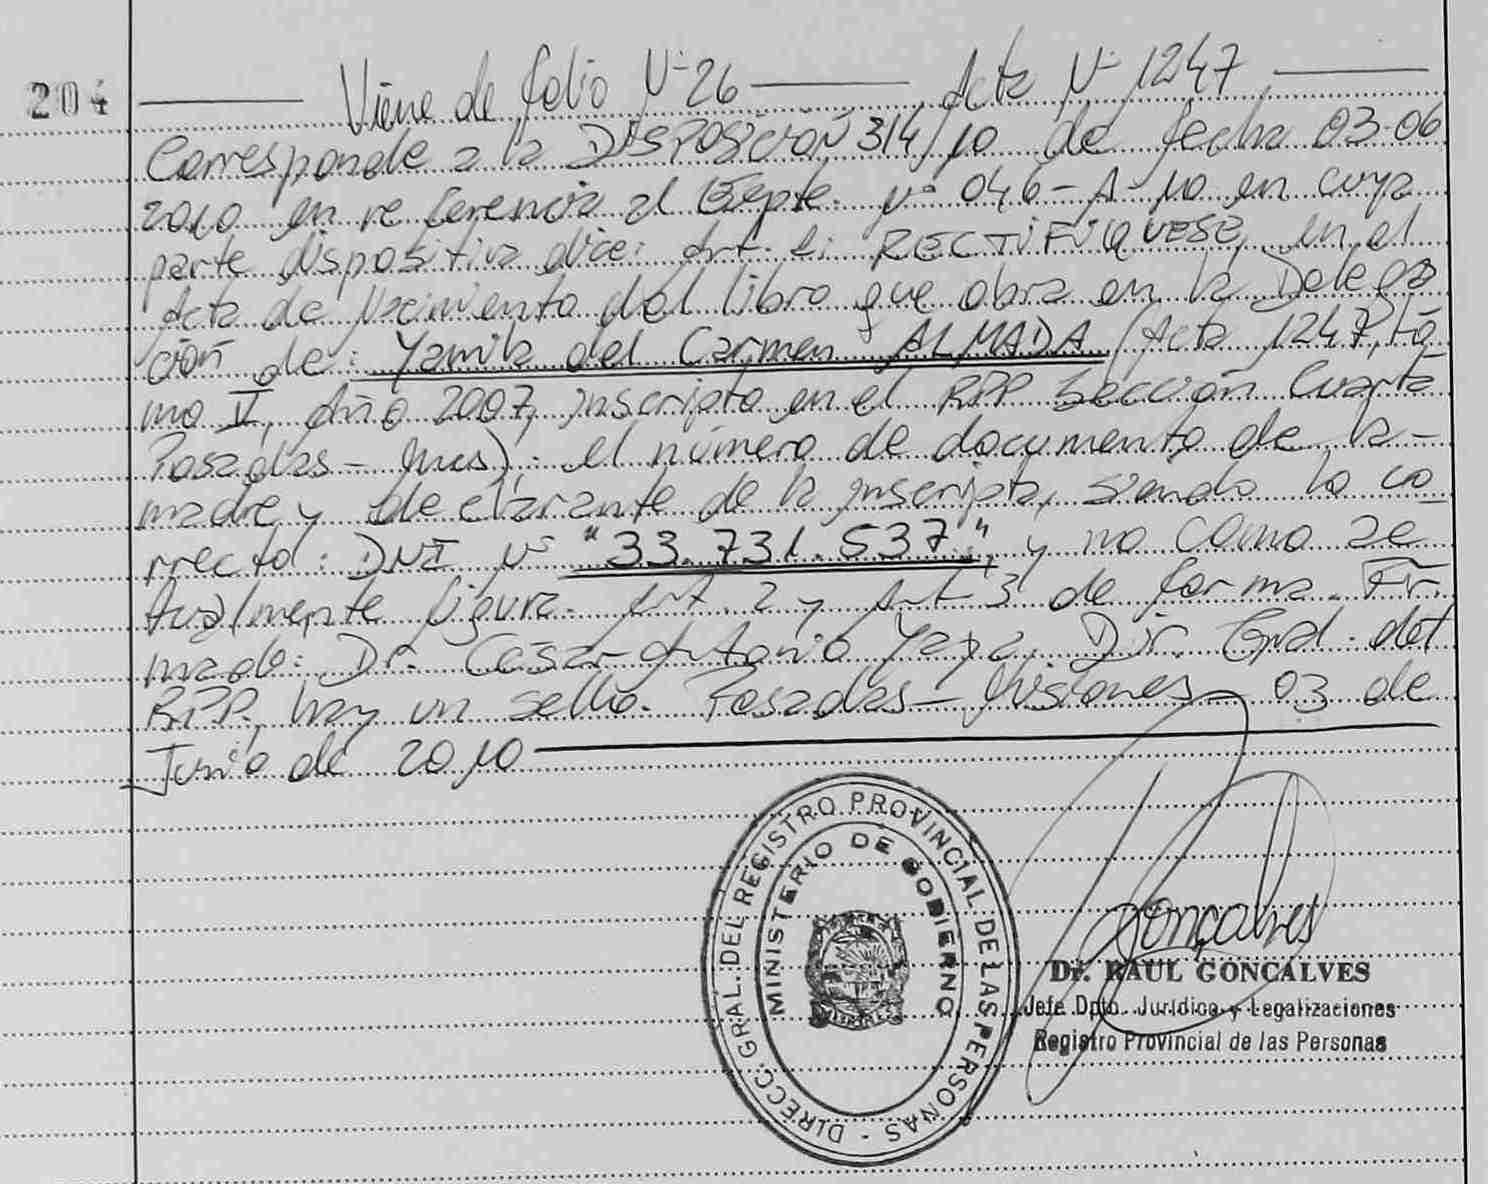 204
Viene de folio Nº 26 Acta Nº 1247
Corresponde a la DISPOSICIÓN 314/10 de fecha 03-06
2010 en referencia al Expte. Nº 046-A-10 en cuya
parte dispositiva dice: Art. 1: RECTIFIQUESE, en el
Acta de Nacimiento del libro que obra en la Delega
ción de: Yamila del Carmen ALMADA (Acta 1247, to
mo V, año 2007, inscripta en el RPP Sección Cuarta
Posadas - Mnes), el número de documento de la -
madre y declarante de la inscripta, siendo lo co
rrecto: DNI Nº "33.731.537", y no como ac
tualmente figura. Art. 2 y Art 3 de forma. Fir
mado: Dr. Cesar Antonio Yaya. Dir. Gral. del
RPP. hay un sello. Posadas - Misiones 03 de
Junio de 2010
DIRECC. GRAL. DEL REGISTRO PROVINCIAL DE LAS PERSONAS -
MINISTERIO DE GOBIERNO
MISIONES
Gonçalves
Dr. RAUL GONCALVES
Jefe Dpto. Jurídico y Legalizaciones
Registro Provincial de las Personas